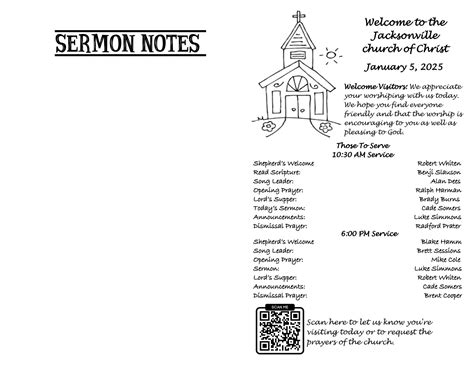 SERMON NOTES
Welcome to the
Jacksonville
church of Christ
January 5, 2025
Welcome Visitors: We appreciate
your worshiping with us today.
We hope you find everyone
friendly and that the worship is
encouraging to you as well as
pleasing to God.
Those To Serve
10:30 AM Service
Shepherd's Welcome Robert Whiten
Read Scripture: Benji Slawson
Song Leader: Alan Dees
Opening Prayer: Ralph Harman
Lord's Supper: Brady Burns
Today's Sermon: Cade Somers
Announcements: Luke Simmons
Dismissal Prayer: Radford Prater
6:00 PM Service
Shepherd's Welcome Blake Hamm
Song Leader: Brett Sessions
Opening Prayer: Mike Cole
Sermon: Luke Simmons
Lord's Supper: Robert Whiten
Announcements: Cade Somers
Dismissal Prayer: Brent Cooper
SCAN ME
Scan here to let us know you're
visiting today or to request the
prayers of the church.